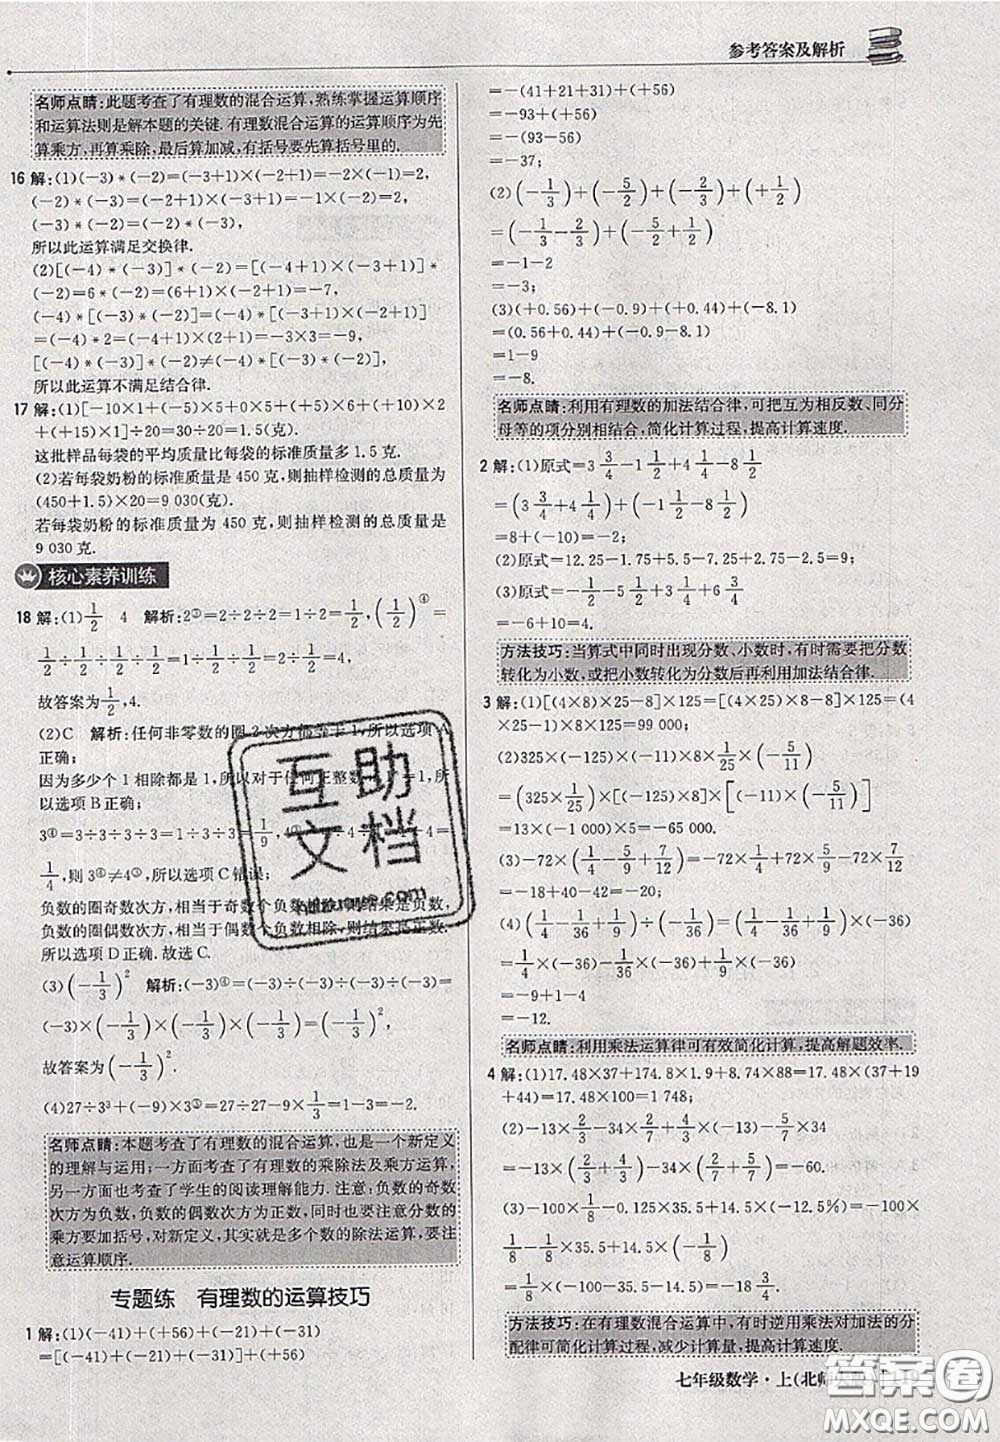 参考答案及解析
名师点睛:此题考查了有理数的混合运算,熟练掌握运算顺序
和运算法则是解本题的关键.有理数混合运算的运算顺序为先
算乘方,再算乘除,最后算加减,有括号要先算括号里的.
16 解:(1)(-3)*(-2)=(-3+1)×(-2+1)=-2×(-1)=2,
(-2)*(-3)=(-2+1)×(-3+1)=-1×(-2)=2,
(-3)*(-2)=(-2)*(-3),
所以此运算满足交换律.
(2)[(-4)*(-3)]*(-2)=[(-4+1)×(-3+1)]*
(-2)=6*(-2)=(6+1)×(-2+1)=-7,
(-4)*[(-3)*(-2)]=(-4)*[(-3+1)×(-2+1)]
=(-4)*2=(-4+1)×(2+1)=-3×3=-9,
[(-4)*(-3)]*(-2)≠(-4)*[(-3)*(-2)],
所以此运算不满足结合律.
17 解:(1)[-10×1+(-5)×5+0×5+(+5)×6+(+10)×2
+(+15)×1]÷20=30÷20=1.5(克).
这批样品每袋的平均质量比每袋的标准质量多 1.5 克.
(2)若每袋奶粉的标准质量是 450 克,则抽样检测的总质量是
(450+1.5)×20=9 030(克).
若每袋奶粉的标准质量为 450 克,则抽样检测的总质量是
9 030 克.
核心素养训练
18 解:(1)1/2 4 解析:2^③=2÷2÷2=1÷2=1/2,(1/2)^④=
1/2÷1/2÷1/2÷1/2=1÷1/2÷1/2=2÷1/2=4,
故答案为1/2,4.
(2)C 解析:任何非零数的圈 2 次方都等于 1,所以选项 A
正确;
因为多少个 1 相除都是 1,所以对于任何正整数 =1,所
以选项 B 正确;
3^④=3÷3÷3÷3=1÷3÷3=1/9,4=
1/4,则 3^④≠4^③,所以选项 C 错误;
负数的圈奇数次方,相当于奇数个负数相除,则结果是负数,
负数的圈偶数次方,相当于偶数个负数相除,则结果是正数.
所以选项 D 正确.故选 C.
(3)(-1/3)² 解析:(-3)^④=(-3)÷(-3)÷(-3)÷(-3)=
(-3)×(-1/3)×(-1/3)×(-1/3)=(-1/3)²,
故答案为(-1/3)².
(4)27÷3³+(-9)×3^③=27÷27-9×1/3=1-3=-2.
名师点睛:本题考查了有理数的混合运算,也是一个新定义
的理解与运用;一方面考查了有理数的乘除法及乘方运算,
另一方面也考查了学生的阅读理解能力.注意:负数的奇数
次方为负数,负数的偶数次方为正数,同时也要注意分数的
乘方要加括号,对新定义,其实就是多个数的除法运算,要注
意运算顺序.
专题练 有理数的运算技巧
1 解:(1)(-41)+(+56)+(-21)+(-31)
=[(-41)+(-21)+(-31)]+(+56)
=-(41+21+31)+(+56)
=-93+(+56)
=-37;
(2)(-1/3)+(-5/2)+(-2/3)+(+1/2)
=(-1/3-2/3)+(-5/2+1/2)
=-1-2
=-3;
(3)(+0.56)+(-0.9)+(+0.44)+(-8.1)
=(0.56+0.44)+(-0.9-8.1)
=1-9
=-8.
名师点睛:利用有理数的加法结合律,可把互为相反数、同分
母等的项分别相结合,简化计算过程,提高计算速度.
2 解:(1)原式=3 3/4-1 1/2+4 1/4-8 1/2
=(3 3/4+4 1/4)+(-1 1/2-8 1/2)
=8+(-10)=-2;
(2)原式=12.25-1.75+5.5-7.25+2.5-2.25=9;
(3)原式=-2 1/2-3 1/2+5 3/5+4 2/5
=-6+10=4.
方法技巧:当算式中同时出现分数、小数时,有时需要把分数
转化为小数,或把小数转化为分数后再利用加法结合律.
3 解:(1)[(4×8)×25-8]×125=[(4×25-1)×8]×125=(4
×25-1)×8×125=99 000;
(2)325×(-125)×(-11)×8×1/25×(-5/11)
=(325×1/25)×[(-125)×8]×[(-11)×(-5/11)]
=13×(-1 000)×5=-65 000;
(3)-72×(1/4-5/9+7/12)=-72×1/4+72×5/9-72×7/12
=-18+40-42=-20;
(4)(1/4-1/36+1/9)÷(-1/36)=(1/4-1/36+1/9)×(-36)
=1/4×(-36)-1/36×(-36)+1/9×(-36)
=-9+1-4
=-12.
名师点睛:利用乘法运算律可有效简化计算,提高解题效率.
4 解:(1)17.48×37+174.8×1.9+8.74×88=17.48×(37+19
+44)=17.48×100=1 748;
(2)-13×2/3-34×2/7+1/3×(-13)-5/7×34
=-13×(2/3+1/3)-34×(2/7+5/7)=-13-34=-47;
(3)-100×1/8-0.125×35.5+14.5×(-12.5%)=-100×
1/8-1/8×35.5+14.5×(-1/8)
=1/8×(-100-35.5-14.5)=-18 3/4.
方法技巧:在有理数混合运算中,有时逆用乘法对加法的分
配律可简化计算过程,减少计算量,提高计算速度.
七年级数学·上(北师
互助
文档
答案圈
MXQE.COM